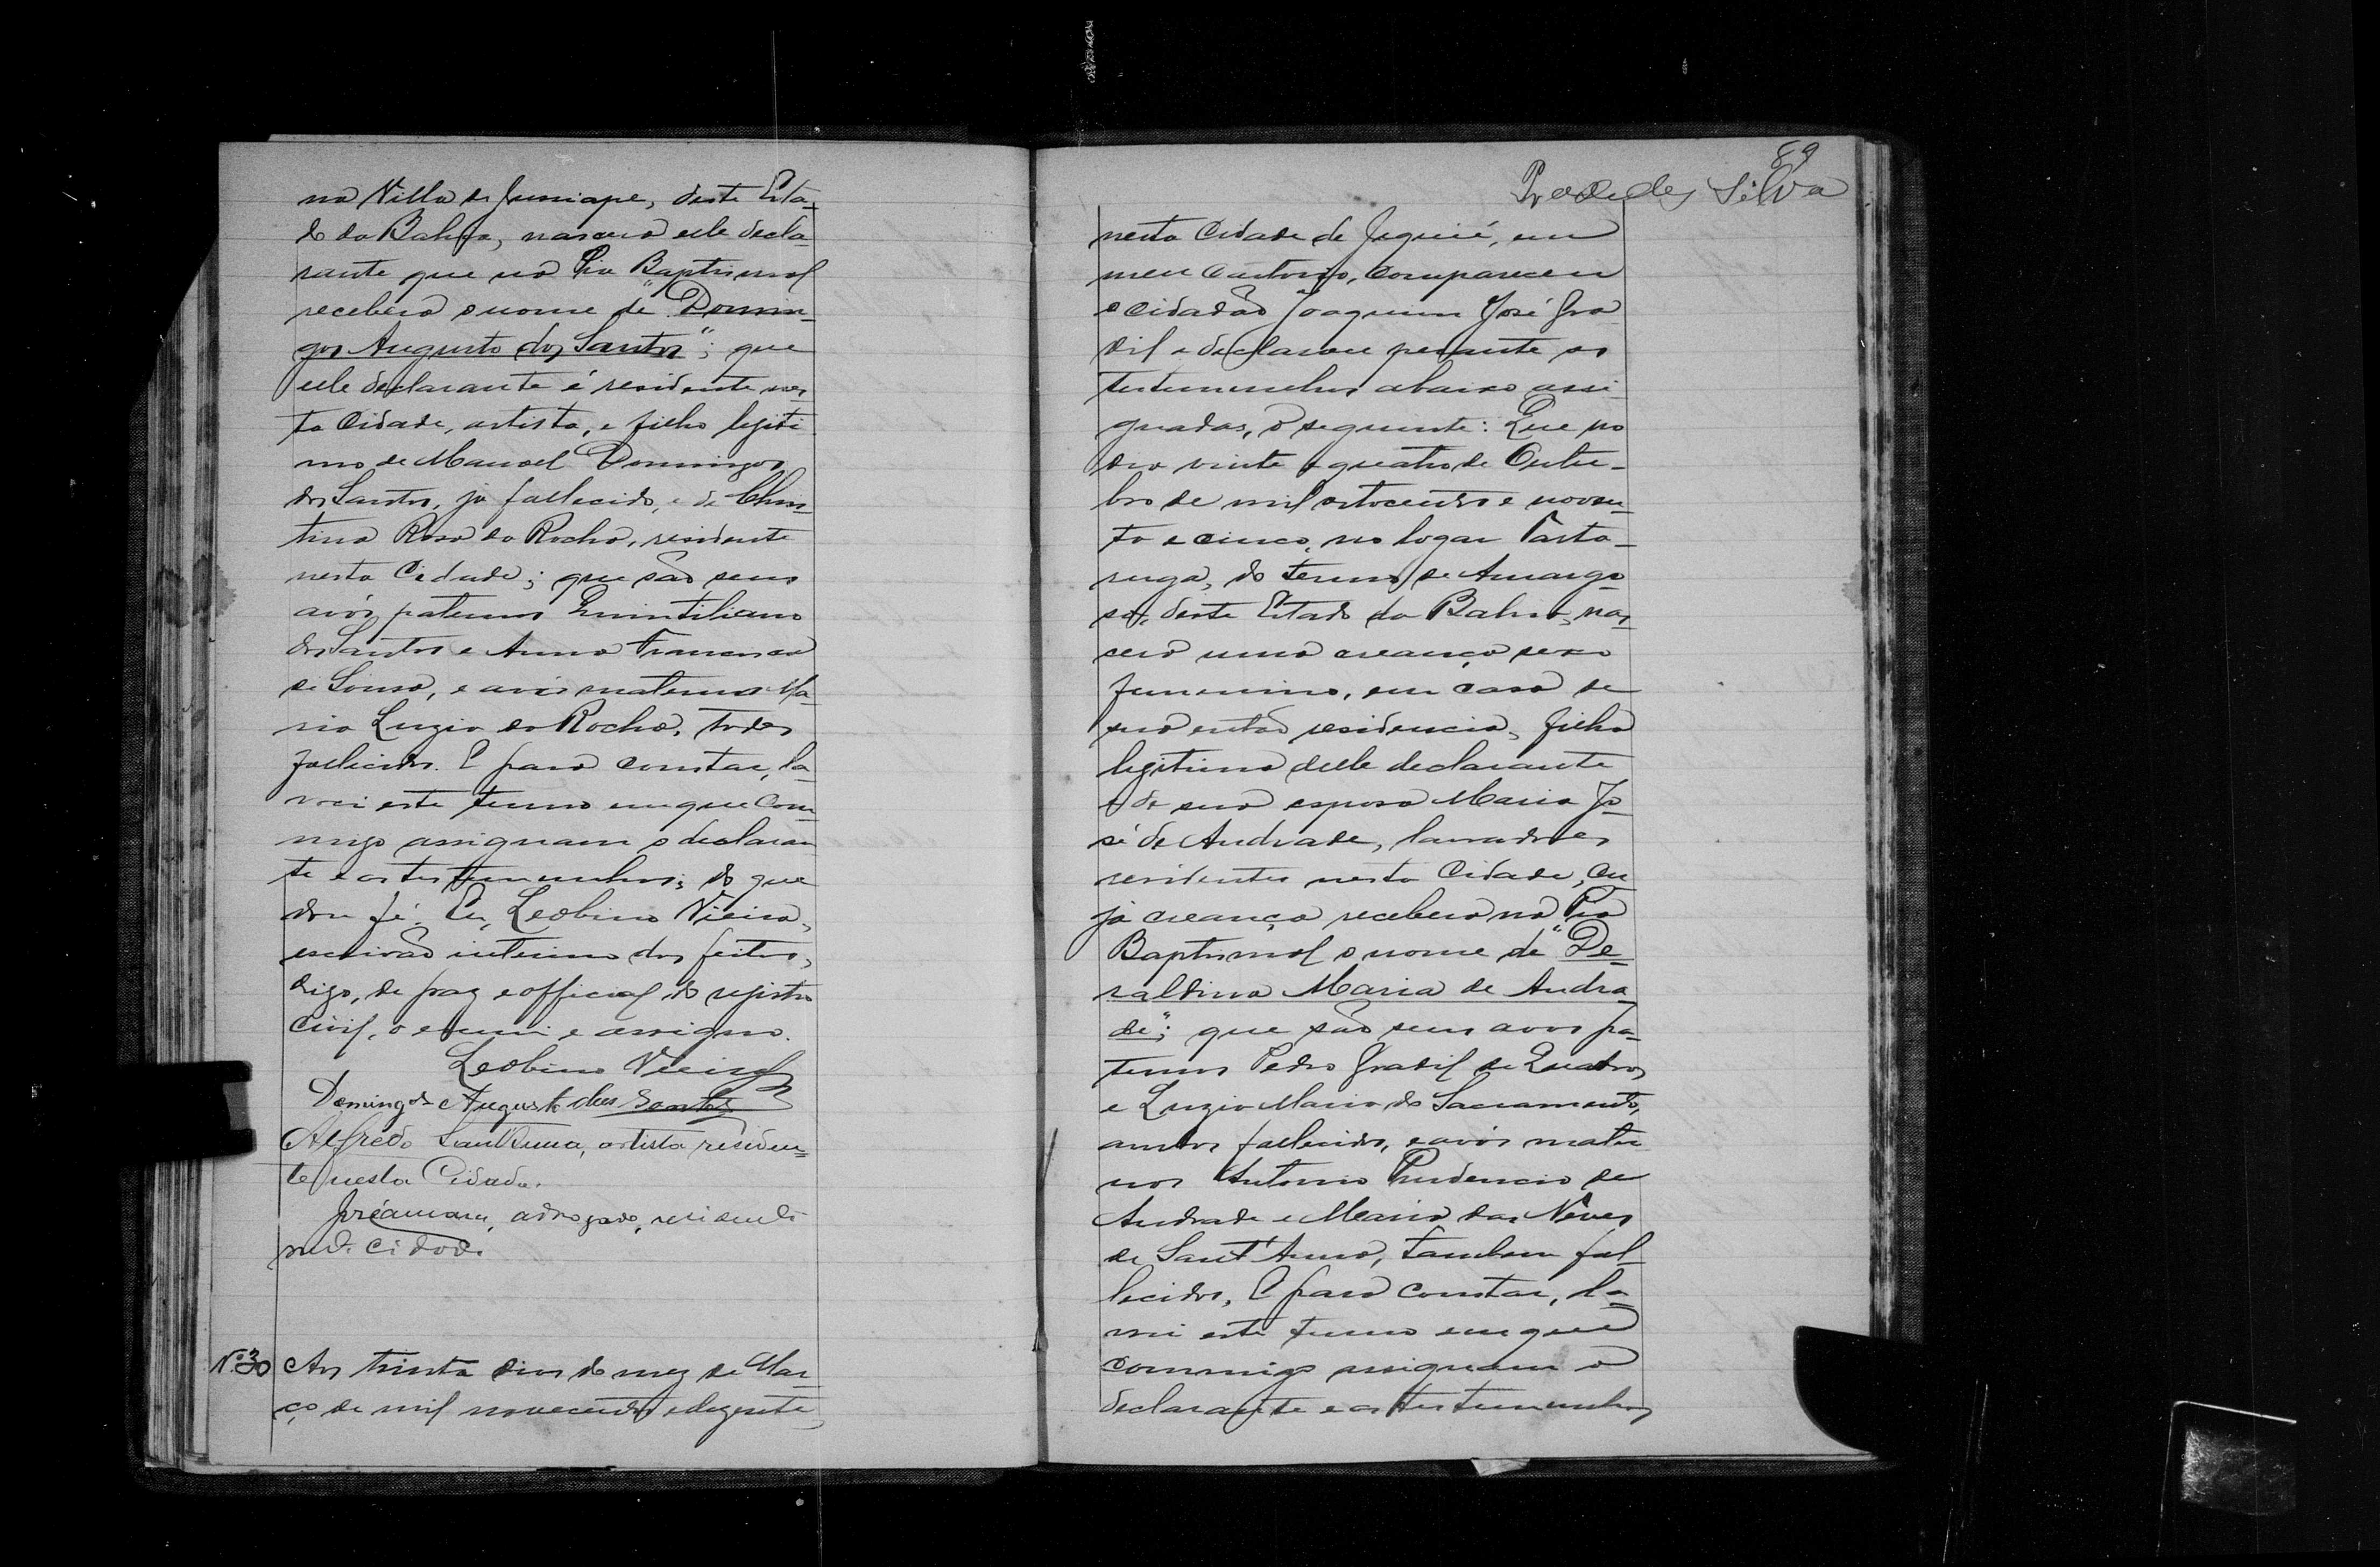 na Villa de Jussiape, deste Esta-
do da Bahia, nascera elle decla-
rante que na Pia Baptismal
recebera o nome de "Domin-
gos Augusto dos Santos"; que
elle declarante é residente nes-
ta Cidade, artista, e filho legiti
mo de Manoel Domingos
dos Santos, ja fallecido, e de Chris-
tina Rosa da Rocha, residente
nesta Cidade; que são seus
avós paternos Quintiliano
dos Santos e Anna Francisca
de Sousa, e avós maternos Ma-
ria Luzia da Rocha, todos
fallecidos. E para constar, la-
vrei este termo em que com-
migo assignam o declaran
te e as testemunhas; do que
dou fé. Eu, Leobino Vieira,
escrivão interino dos feitos,
digo, de paz e official do registro
civil, o escrevi e assigno.
Leobino Vieira
Domingos Augusto dos Santos
Alfredo Sant'Anna, artista residen=
te nesta Cidade.
advogado, residente
nesta cidade
Nº 30 Aos trinta dias do mez de Mar-
ço de mil novecentos e dezesete,
89
Silva
nesta Cidade de Jequié, em
meu Cartorio, compareceu
o cidadão Joaquim José Gra
dil e declarou perante as
testemunhas abaixo assi-
gnadas, o seguinte: Que no
dia vinte e quatro de Outu-
bro de mil oitocentos e noven-
ta e cinco, no logar Tarta-
ruga, do termo de Amargo-
sa, deste Estado da Bahia, nas-
cera uma creança sexo
femenino, em casa de
sua então residencia, filha
legitima delle declarante
e de sua esposa Maria Jo-
sé de Andrade, lavradores
residentes nesta Cidade, cu-
ja creança recebera na Pia
Baptismal o nome de "De-
raldina Maria de Andra-
de"; que são seus avos pa-
ternos Pedro Gradil de Quadros
e Luzia Maria do Sacramento,
ambos fallecidos, e avós mater
nos Antonio Prudencio de
Andrade e Maria das Neves
de Sant'Anna, tambem fal-
lecidos. E para constar, la-
vrei este termo em que
commigo assignam o
declarante e as testemunhas